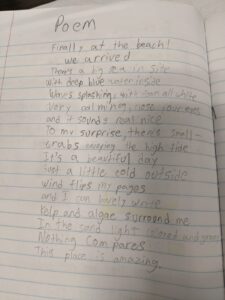 Poem
Finally at the beach!
we arrived
There's a big sea in site
With deep blue water inside
Waves splashing, with foam all white
Very calming, close your eyes
and it sounds real nice
To my surprise, there's small
crabs escaping the high tide
It's a beautiful day
Just a little cold outside
wind flips my pages
and I can barely write
Kelp and algae surround me
In the sand light colored and green
Nothing compares
This place is amazing.